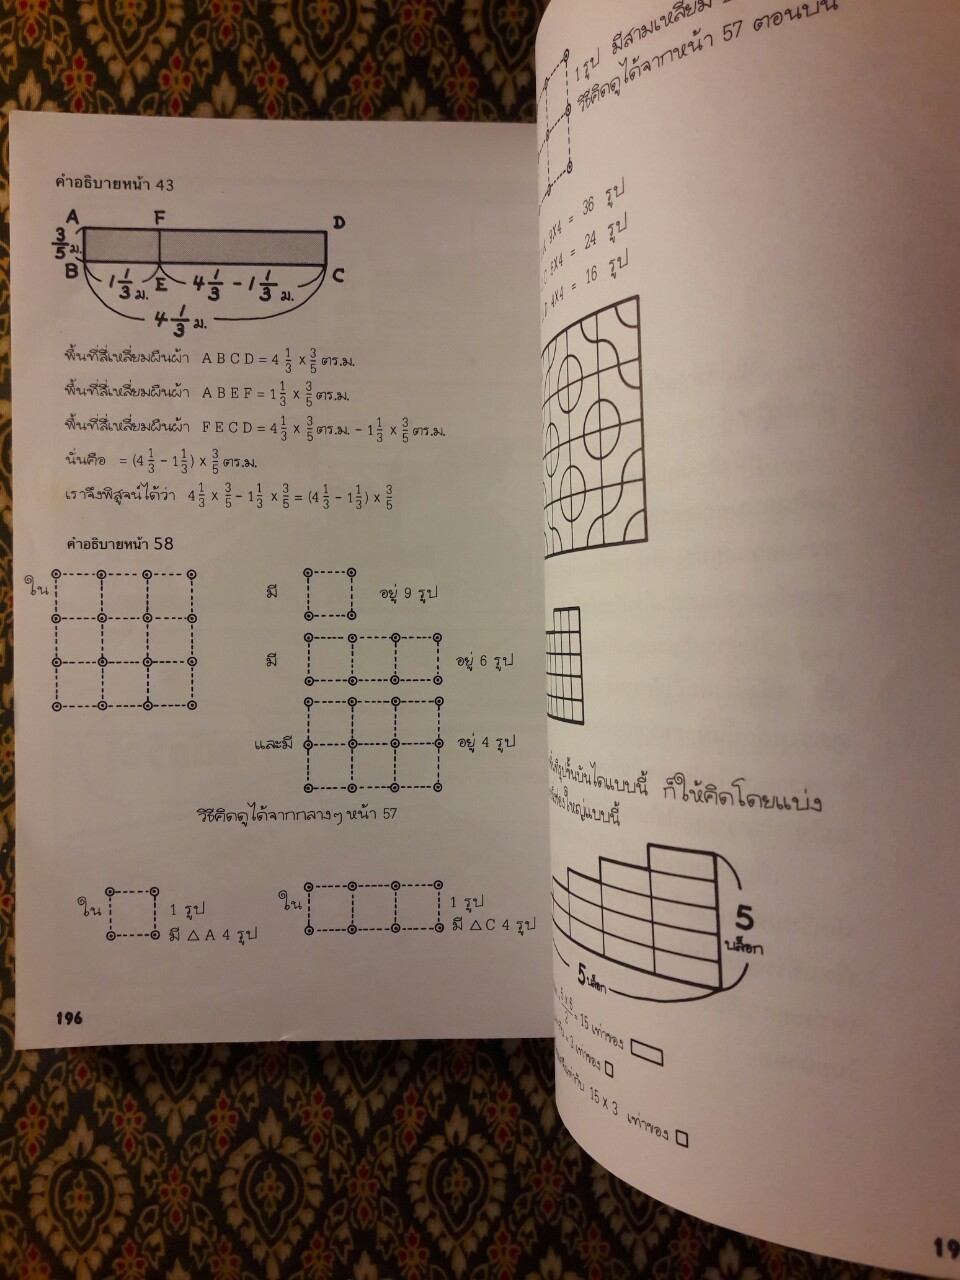 คำอธิบายหน้า 43
A F D
3/5 ม.
B E C
1 1/3 ม. 4 1/3 - 1 1/3 ม.
4 1/3 ม.
พื้นที่สี่เหลี่ยมผืนผ้า A B C D = 4 1/3 x 3/5 ตร.ม.
พื้นที่สี่เหลี่ยมผืนผ้า A B E F = 1 1/3 x 3/5 ตร.ม.
พื้นที่สี่เหลี่ยมผืนผ้า F E C D = 4 1/3 x 3/5 ตร.ม. - 1 1/3 x 3/5 ตร.ม.
นั่นคือ = (4 1/3 - 1 1/3) x 3/5 ตร.ม.
เราจึงพิสูจน์ได้ว่า 4 1/3 x 3/5 - 1 1/3 x 3/5 = (4 1/3 - 1 1/3) x 3/5
คำอธิบายหน้า 58
ใน มี อยู่ 9 รูป
มี อยู่ 6 รูป
และมี อยู่ 4 รูป
วิธีคิดดูได้จากกลางๆ หน้า 57
ใน 1 รูป
มี △ A 4 รูป
ใน 1 รูป
มี △ C 4 รูป
196
1 รูป มีสามเหลี่ยม
วิธีคิดดูได้จากหน้า 57 ตอนบน
9X4 = 36 รูป
X4 = 24 รูป
4X4 = 16 รูป
รูปขั้นบันไดแบบนี้ ก็ให้คิดโดยแบ่ง
ใหญ่แบบนี้
5 บล็อก
5 บล็อก
5 x 6/2 = 15 เท่าของ
3 เท่าของ
เท่ากับ 15 X 3 เท่าของ
19